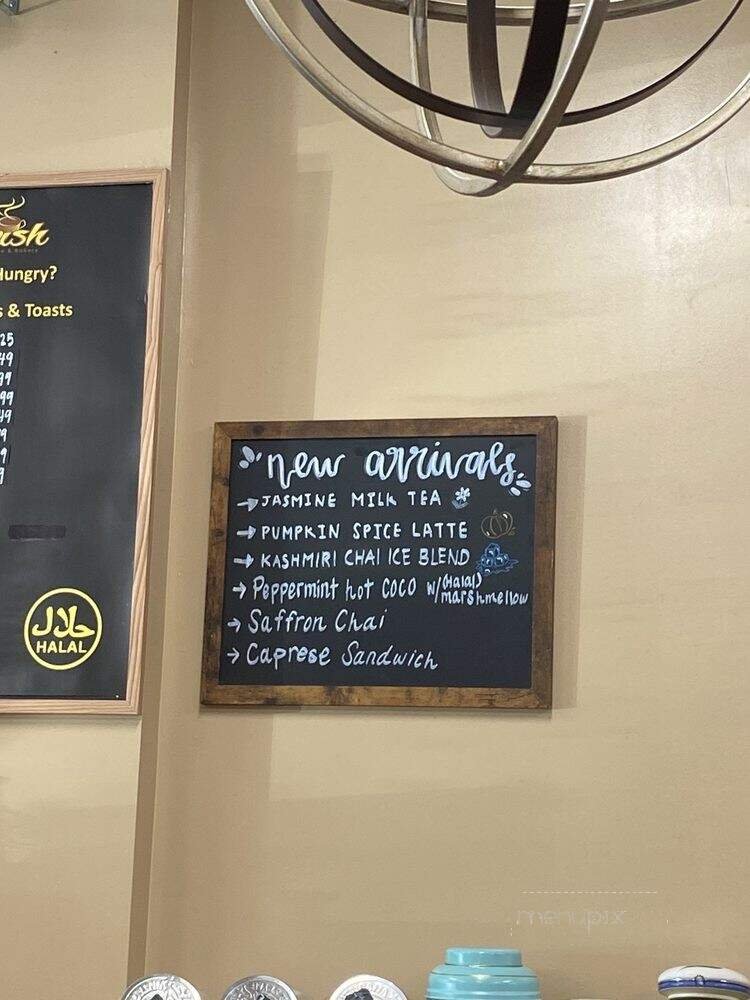 ungry?
s & Toasts
25
49
99
49
9
9
9
حلال
HALAL
new arrivals
→ JASMINE MILK TEA
→ PUMPKIN SPICE LATTE
→ KASHMIRI CHAI ICE BLEND
→ Peppermint hot COCO w/ (Halal) marshmellow
→ Saffron Chai
→ Caprese Sandwich
menupix